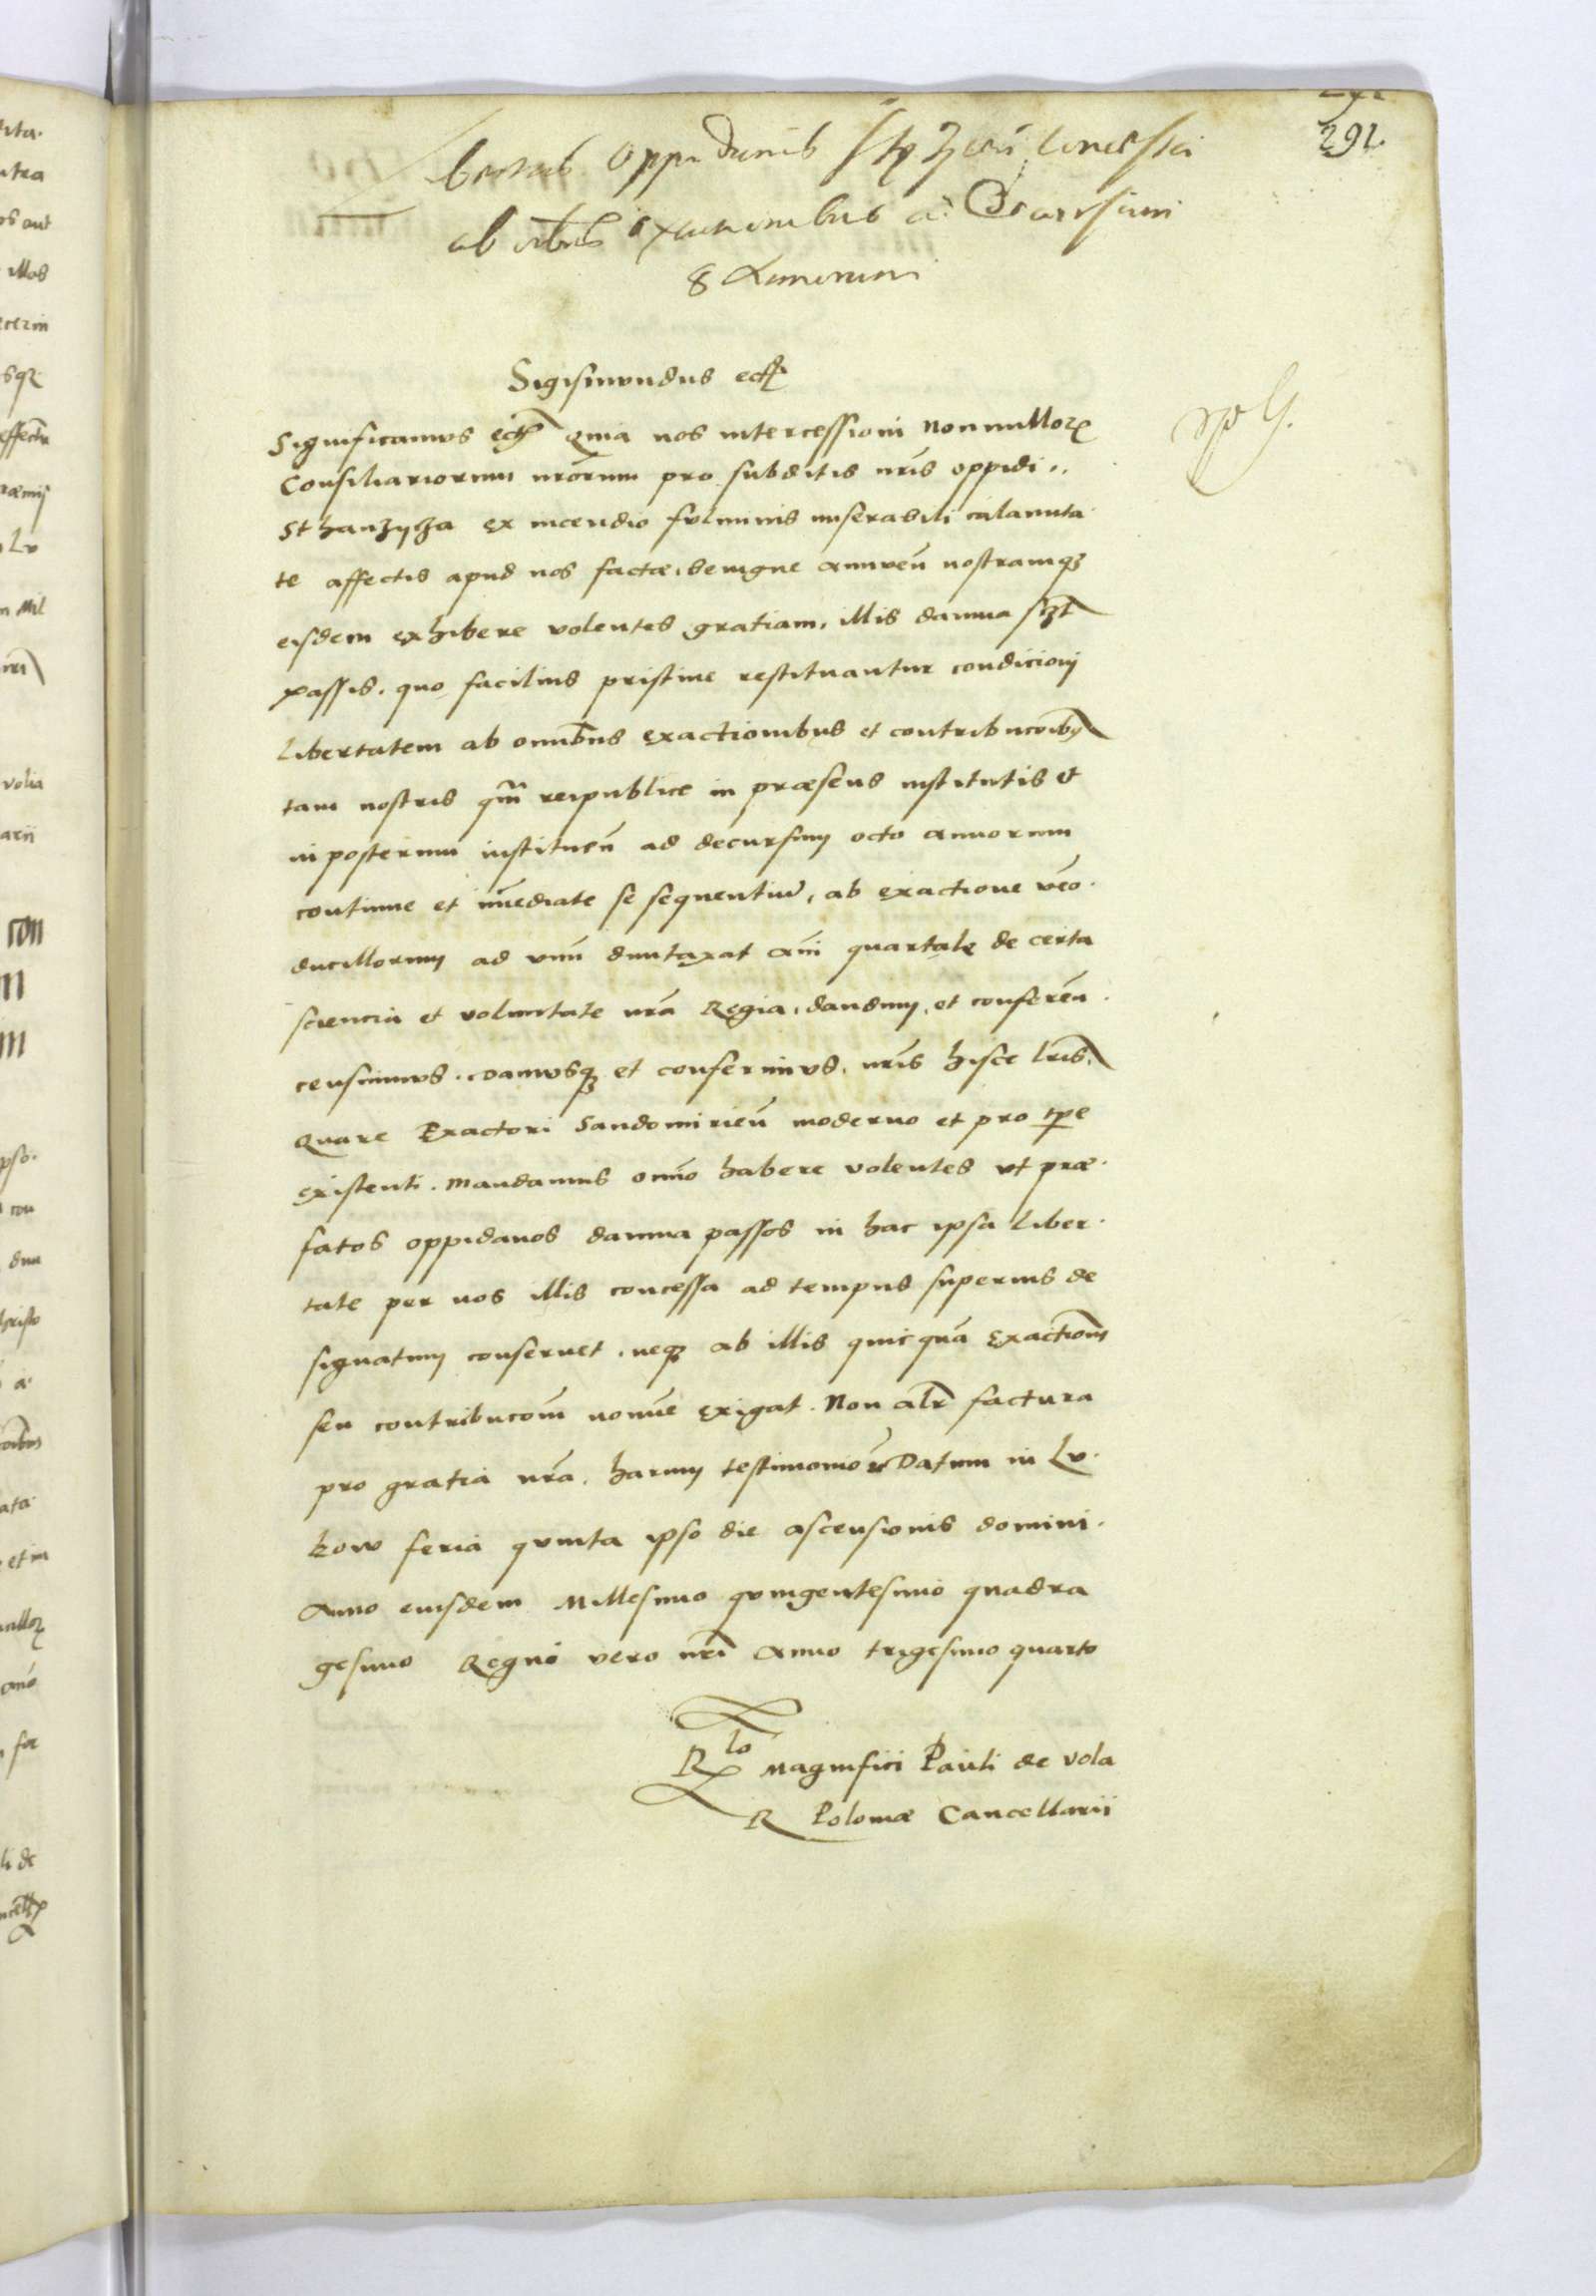 291
292.
Libertas oppidanis Stęziczi concessa
ab omnibus exactionibus ad Decursum
8 Annorum
Sigismundus etc
Significamus etc Quia nos intercessioni Nonnulloꝝ
Consiliariorum nrōrum pro subditis nrīs oppidi
Sthanzycza ex incendio fulminis miserabili calamita
te affectis apud nos factæ, benigne annuen̄ nostramqꝫ
eisdem exhibere volentes gratiam, illis damna
passis, quo facilius pristine restituantur condicioni
Libertatem ab omnibus exactionibus et contribucōibus
tam nostris qm̄ reipublice in præsens institutis et
in posterum instituen̄ ad decursum octo annorum
continue et im̄ediate se sequentiū, ab exactione vēo
ducillorum ad vnū duntaxat an̄i quartale de certa
sciencia et voluntate nrā Regia, dandum, et conferen̄
censuimus, damusqꝫ et conferimus, nrīs hisce lrīs,
Quare Exactori Sandomirien̄ moderno et pro tpe
existenti. Mandamus omnō habere volentes vt præ
fatos oppidanos damna passos in hac ipsa liber
tate per nos illis concessa ad tempus superius de
signatum conseruet, neqꝫ ab illis quicquā exactionū
seu contribucōm nomīe exigat. Non alr̄ factura
pro gratia nrā, harum testimonio Datum in Lu
kow feria quinta ipso die ascensionis domini
Anno eiusdem Millesimo quingentesimo quadra
gesimo Regni vero nrī anno trigesimo quarto
Rlo Magnifici Pauli de Vola
R Poloniæ Cancellarii